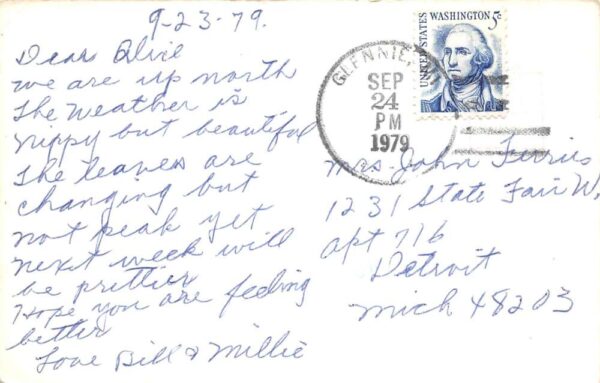 9-23-79.
Dear Olvie
we are up north
The weather is
nippy but beautiful
The leaves are
changing but
not peak yet
next week will
be prettier
Hope you are feeling
better
Love Bill & Millie
UNITED STATES
WASHINGTON 5c
GLENNIE,
SEP
24
PM
1979
Mrs John Ferries
1231 State Fair W.
apt 716
Detroit
Mich 48203